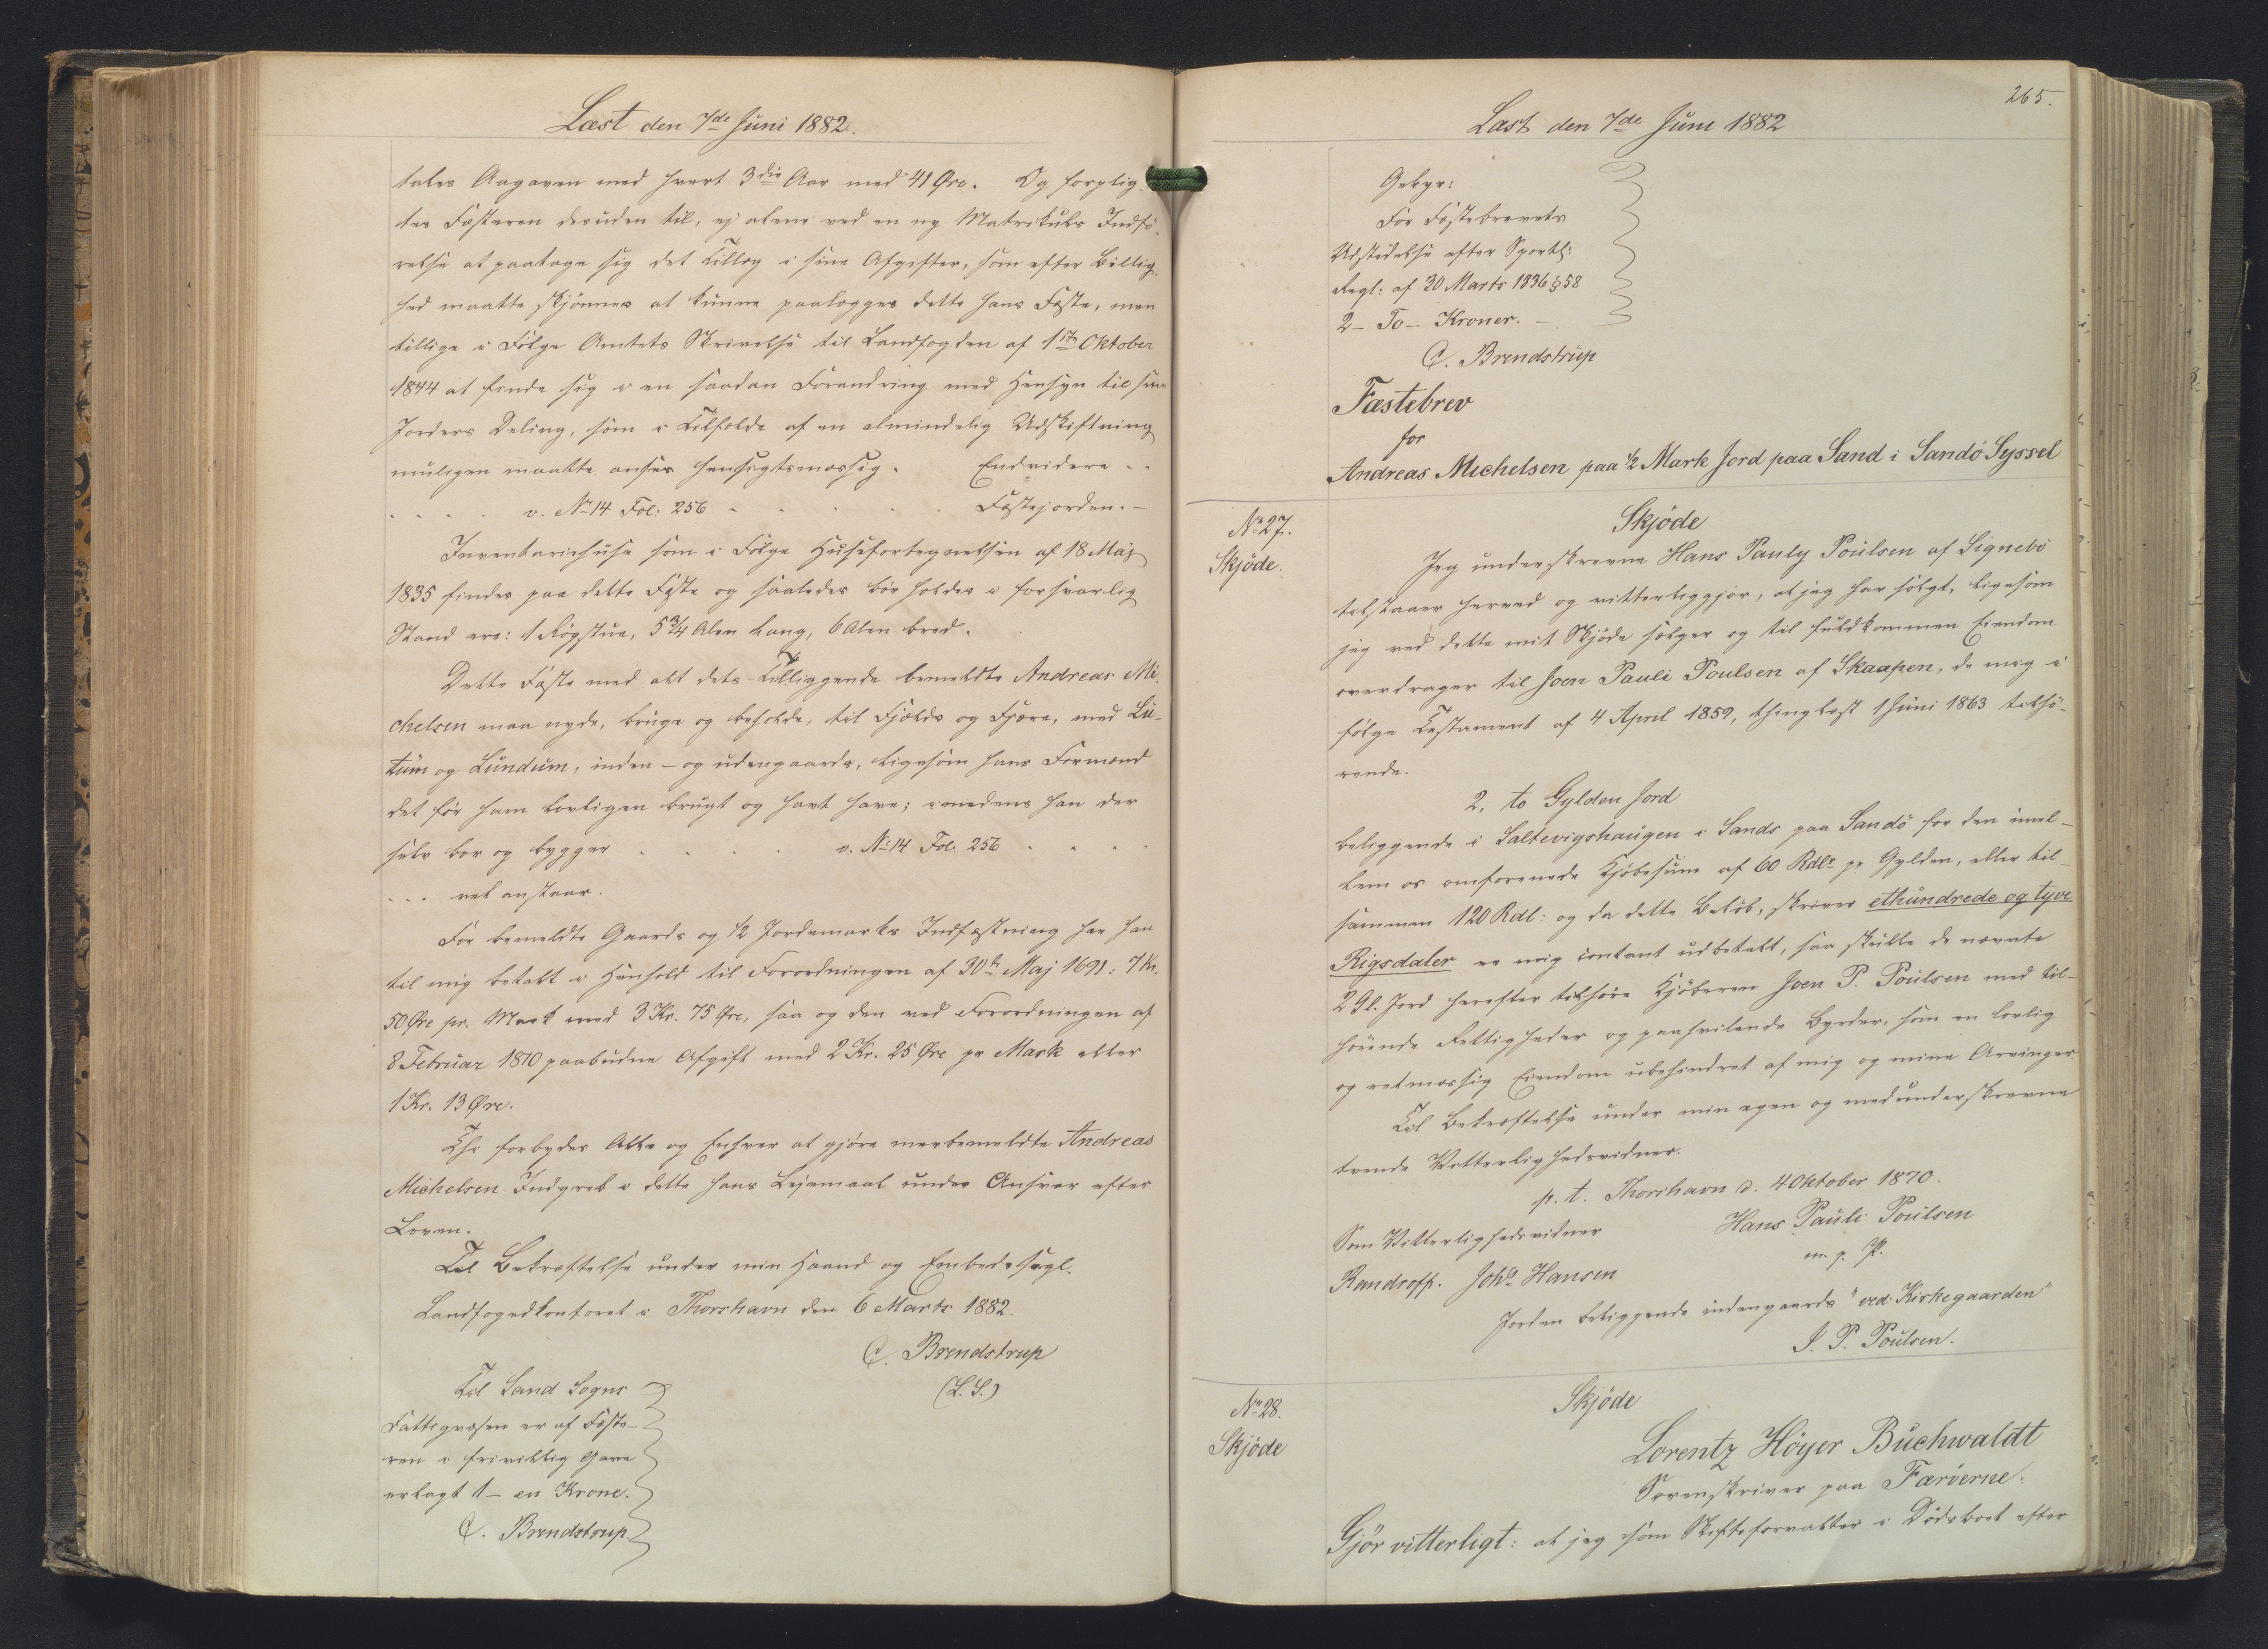 Læst den 7de Juni 1882.
tales Aagaven med hvert 3die Aar med 41 Øre. Og forplig-
tes Fæsteren desuden til, ej alene ved en ny Matrikuls Indfö-
relse at paatage sig det Tillæg i sine Afgifter, som efter Billig-
hed maatte skjönnes at kunne paalægges dette hans Fæste, men
tillige i Fölge Amtets Skrivelse til Landfogden af 1ste Oktober
1844 at finde sig i en saadan Forandring med Hensyn til sine
Jorders Deling, som i Tilfælde af en almindelig Udskiftning
muligen maatte anses hensigtsmæssig. Endvidere . .
. . . . v. No 14 Fol: 256 . . . . . Fæstejorden. –
Inventariehuse som i Fölge Husefortegnelsen af 18 Maj
1835 findes paa dette Fæste og saaledes bör holdes i forsvarlig
Stand ere: 1 Rögstue, 5 3/4 Alen lang, 6 Alen bred.
Dette Fæste med alt dets Tilliggende bemeldte Andreas Mi-
chelsen maa nyde, bruge og beholde, til Fjelds og Fjære, med Lu-
tum og Lundum, inden- og udengaards, ligesom hans Formænd
det för ham lovligen brugt og havt have; imedens han der
selv bor og bygger . . . . v. No 14 Fol. 256 . . . .
. . . ret anstaar.
For bemeldte Gaards og 1/2 Jordemarks Indfæstning har han
til mig betalt i Henhold til Forordningen af 30te Maj 1691: 7 Kr.
50 Øre pr. Mark med 3 Kr. 75 Øre, saa og den ved Forordningen af
8 Februar 1810 paabudne Afgift med 2 Kr. 25 Øre pr Mark eller
1 Kr. 13 Øre.
Thi forbydes Alle og Enhver at gjöre merbemeldte Andreas
Michelsen Indgreb i dette hans Lejemaal under Ansvar efter
Loven.
Til Bekræftelse under min Haand og Embedssegl.
Landfogedkontoret i Thorshavn den 6 Marts 1882.
C. Brendstrup
(L. S.)
Til Sand Sogns
Fattigvæsen er af Fæste-
ren i frivillig Gave
erlagt 1 – en Krone.
C. Brendstrup
265.
Læst den 7de Juni 1882
Gebyr:
For Fæstebrevets
Udstedelse efter Sportl:
Regl: af 30 Marts 1836 § 58
2 – To – Kroner. –
C. Brendstrup
Fæstebrev
for
Andreas Michelsen paa 1/2 Mark Jord paa Sand i Sandö Syssel
No 27.
Skjöde.
Skjöde
Jeg underskrevne Hans Pauly Poulsen af Signebö
tilstaaer herved og vitterliggjör, at jeg har solgt, ligesom
jeg ved dette mit Skjöde sælger og til fuldkommen Eiendom
overdrager til Joen Pauli Poulsen af Skaapen, de mig i
fölge Testament af 4 April 1859, thinglæst 1 Juni 1863 tilhö-
rende.
2, to Gylden Jord
beliggende i Saltevigshaugen i Sands paa Sandö for den imel-
lem os omforenede Kjöbesum af 60 Rdlr pr Gylden, eller til-
sammen 120 Rdl: og da dette Belöb, skriver ethundrede og tyve
Rigsdaler er mig contant udbetalt, saa skulle de nævnte
2 Gl. Jord herefter tilhöre Kjöberen Joen P. Poulsen med til-
hörende Rettigheder og paahvilende Byrder, som en lovlig
og retmæssig Eiendom ubehindret af mig og mine Arvinger.
Til Bekræftelse under min egen og medunderskrevne
tvende Vitterlighedsvidner.
p. t. Thorshavn d. 4 Oktober 1870.
Som Vitterlighedsvidner
Hans Pauli Poulsen
m. p. P.
Randropp. Johs Hansen
Jorden beliggende indengaards "ved Kirkegaarden"
J. P. Poulsen.
No 28.
Skjöde
Skjöde
Lorentz Höyer Buchwaldt
Sorenskriver paa Færöerne.
Gjör vitterligt: at jeg som Skifteforvalter i Dödsboet efter